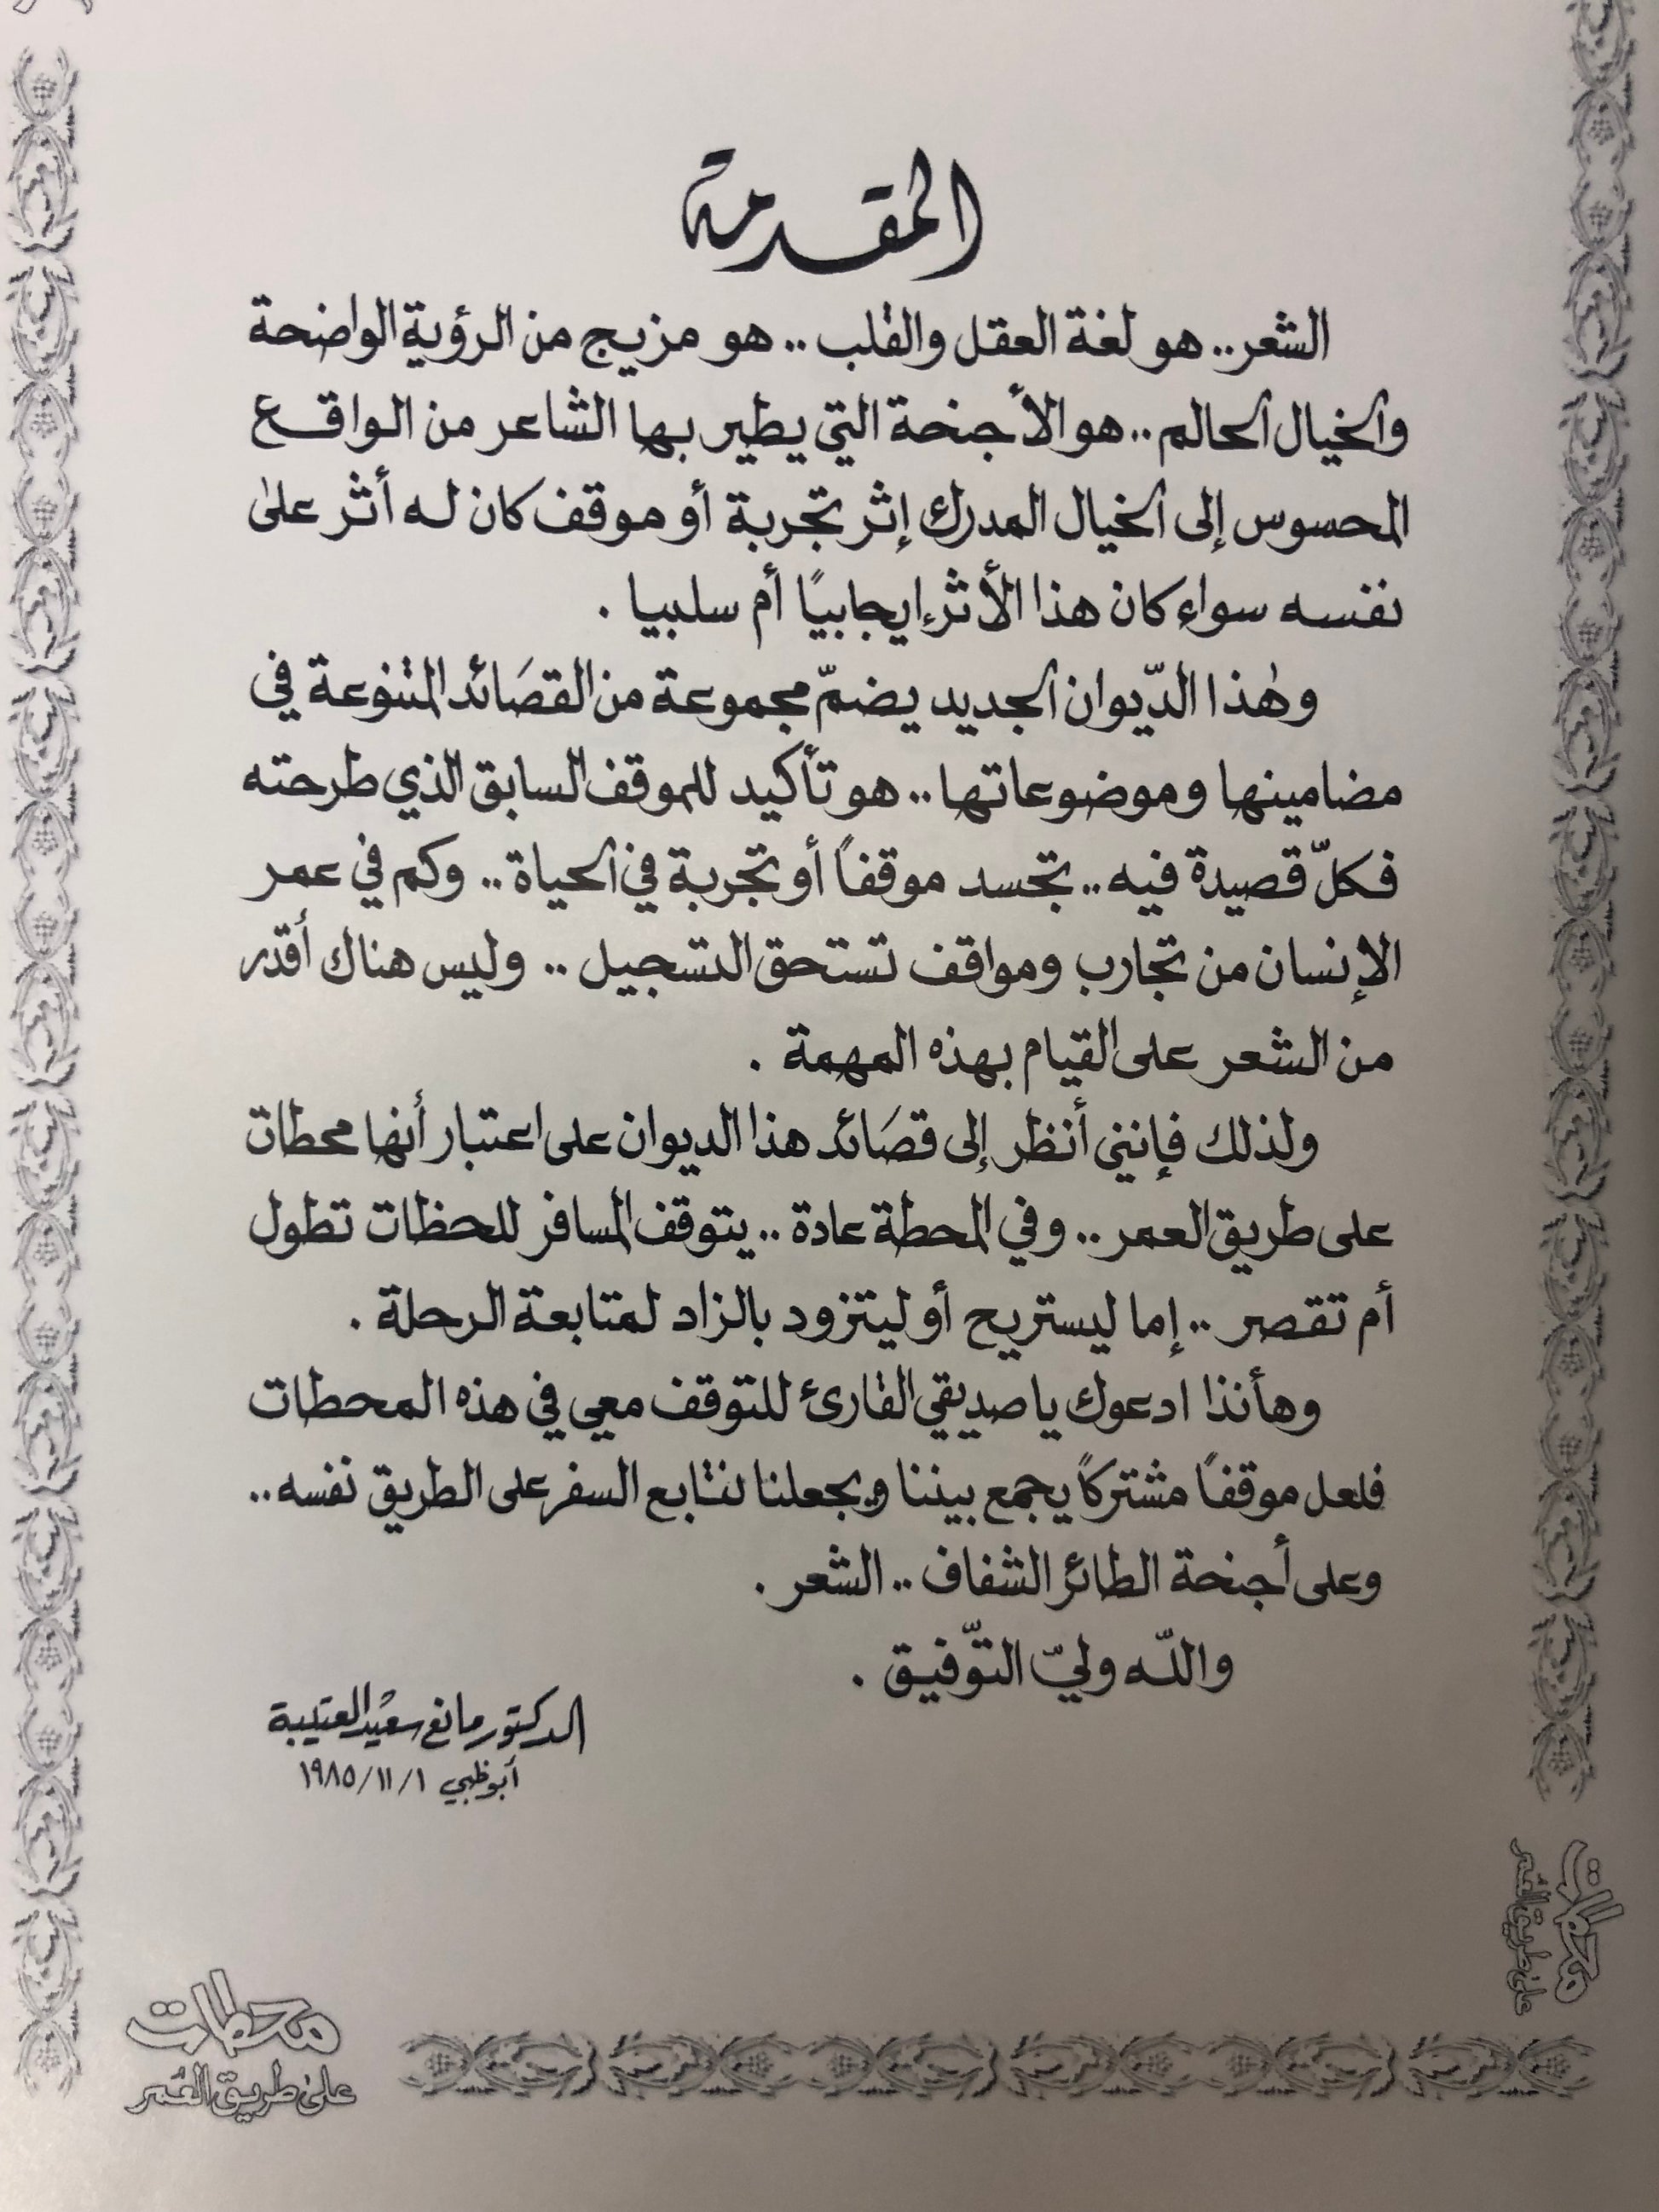 المقدمة
الشعر.. هو لغة العقل والقلب .. هو مزيج من الرؤية الواضحة
والخيال الحالم .. هو الأجنحة التي يطير بها الشاعر من الواقع
المحسوس إلى الخيال المدرك إثر تجربة أو موقف كان له أثر على
نفسه سواء كان هذا الأثر إيجابيًا أم سلبيا .
وهٰذا الدّيوان الجديد يضمّ مجموعة من القصَائد المتنوعة في
مضامينها وموضوعاتها .. هو تأكيد للموقف السابق الذي طرحته
فكلّ قصيدة فيه .. تجسد موقفاً أو تجربة في الحياة .. وكم في عمر
الإنسان من تجارب ومواقف تستحق التسجيل .. وليس هناك أقدر
من الشعر على القيام بهذه المهمة .
ولذلك فإنني أنظر إلى قصَائد هذا الديوان على اعتبار أنها محطات
على طريق العمر .. وفي المحطة عادة .. يتوقف المسافر للحظات تطول
أم تقصر .. إما ليستريح أو ليتزود بالزاد لمتابعة الرحلة .
وهأنذا ادعوك يا صديقي القارئ للتوقف معي في هذه المحطات
فلعل موقفاً مشتركاً يجمع بيننا ويجعلنا نتابع السفر على الطريق نفسه ..
وعلى أجنحة الطائر الشفاف .. الشعر .
والله وليّ التّوفيق .
الدكتور مانع سعيد العتيبة
أبوظبي ١ / ١١ / ١٩٨٥
محطات
على طريق العُمر
محطات
على طريق العُمر